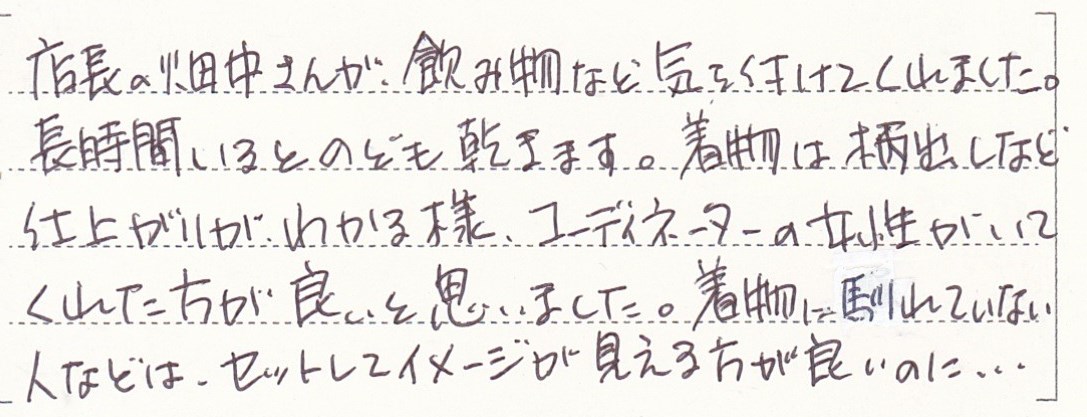 店長の畑中さんが、飲み物など気を付けてくれました。
長時間いるとのども乾きます。着物は柄出しなど
仕上がりがわかる様、コーディネーターの女性がいて
くれた方が良いと思いました。着物に馴れていない
人などは、セットしてイメージが見える方が良いのに…